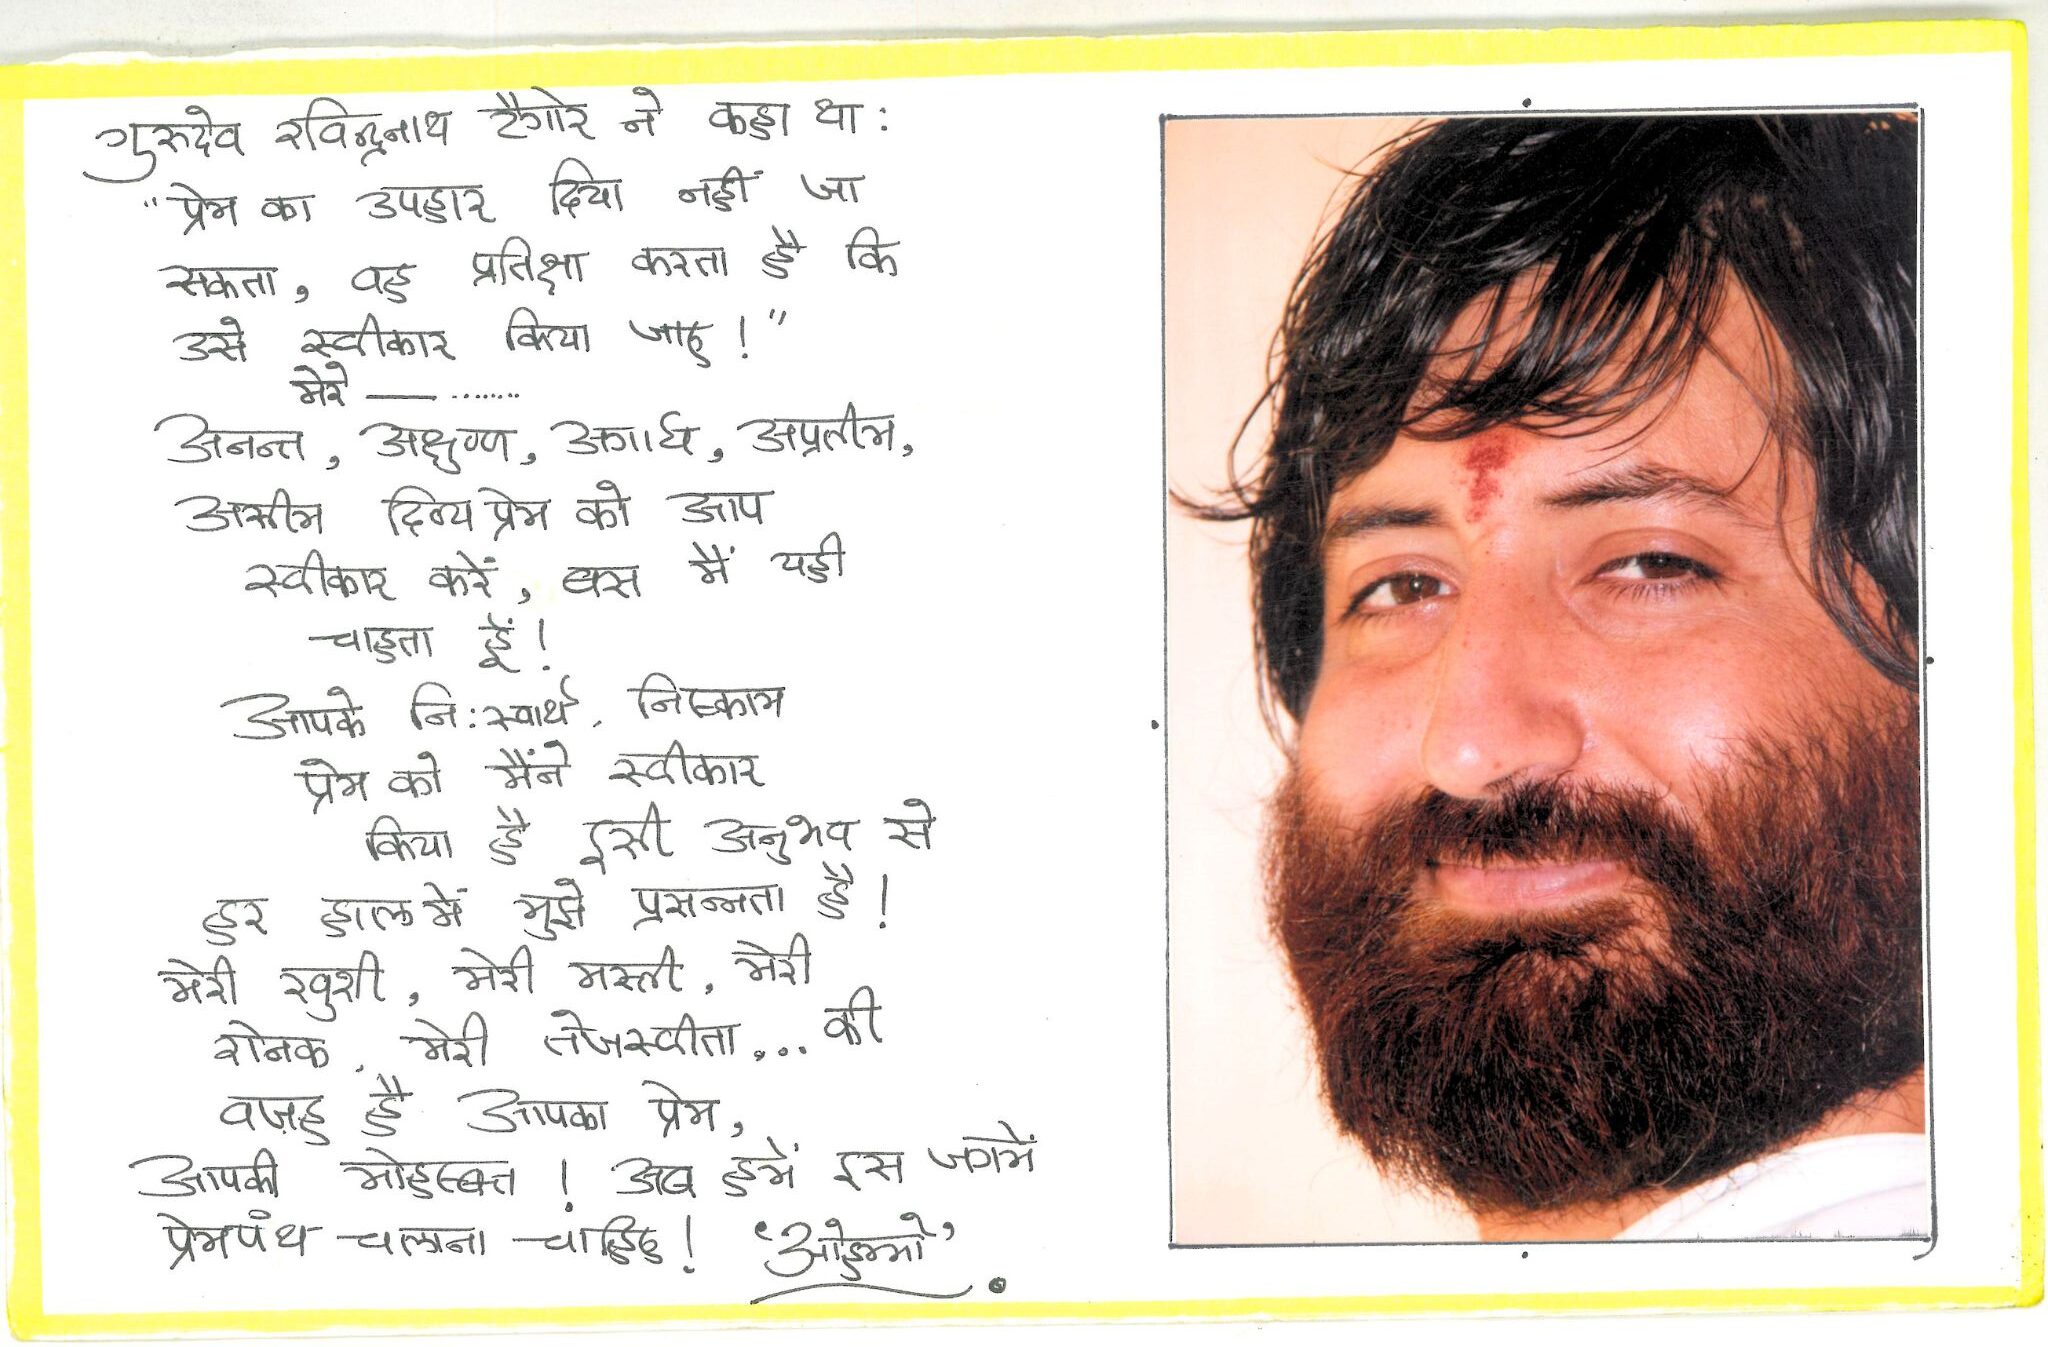 गुरुदेव रविन्द्रनाथ टैगोर ने कहा था :
"प्रेम का उपहार दिया नहीं जा
सकता, वह प्रतिक्षा करता है कि
उसे स्वीकार किया जाए !"
मेरे — ........
अनन्त, अक्षुण्ण, अगाध, अप्रतीम,
असीम दिव्य प्रेम को आप
स्वीकार करें, बस मैं यही
चाहता हूँ !
आपके नि:स्वार्थ, निष्काम
प्रेम को मैंने स्वीकार
किया है इसी अनुभव से
हर हाल में मुझे प्रसन्नता है !
मेरी खुशी, मेरी मस्ती, मेरी
रोनक, मेरी तेजस्वीता... की
वज़ह है आपका प्रेम,
आपकी मोहब्बत ! अब हमें इस जगमें
प्रेमपंथ चलाना चाहिए ! 'ओहम्मो'